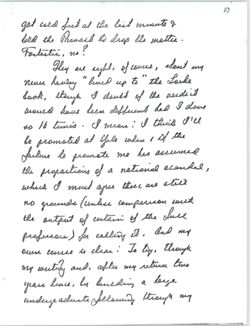 10
got cold feet at the last minute &
told the Provost to drop the matter.
Fantastic, no?
They are right, of course, about my
never having "lived up to" the Luke
book, though I doubt if the verdict
would have been different had I done
so 10 times. I mean: I think I'll
be promoted at Yale when & if the
failure to promote me has assumed
the proportions of a national scandal,
which I must agree there are still
no grounds (unless comparison with
the output of certain of the full
professors) for calling it. And my
own course is clear: To try, through
my writing and, after my return two
years hence, by building a large
undergraduate following through my